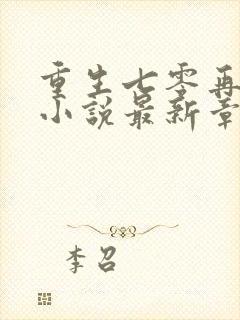 重生七零再
小说最新章
李召